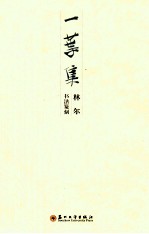 一葉集
林尔
书法篆刻
苏州大学出版社
Soochow University Press